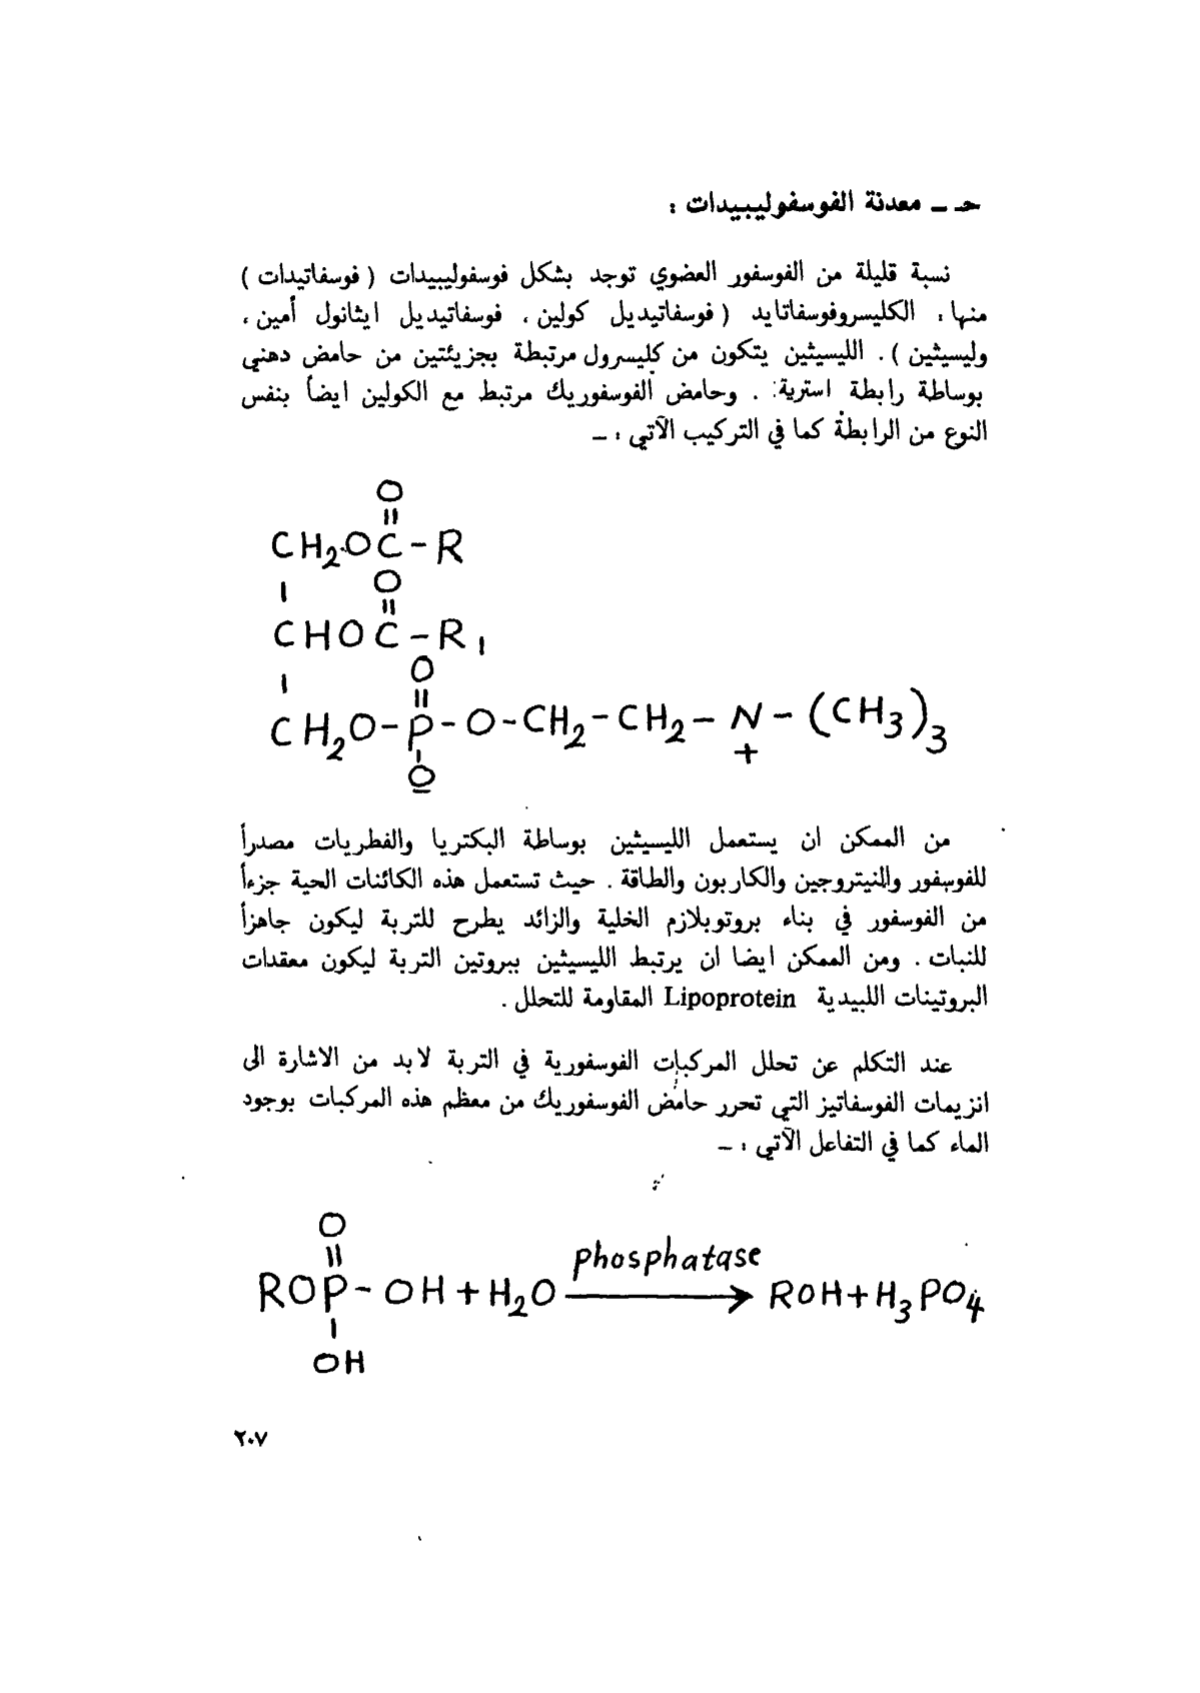 حـ ــ معدنة الفوسفوليبيدات :
نسبة قليلة من الفوسفور العضوي توجد بشكل فوسفوليبيدات ( فوسفاتيدات )
منها : الكليسروفوسفاتايد ( فوسفاتيديل كولين ، فوسفاتيديل ايثانول أمين ،
وليسيثين ) . الليسيثين يتكون من كليسرول مرتبطة بجزيئتين من حامض دهني
بوساطة رابطة استرية . وحامض الفوسفوريك مرتبط مع الكولين ايضاً بنفس
النوع من الرابطة كما في التركيب الآتي : ــ
O
||
CH₂OC-R
| O
||
CHOC-R₁
| O
||
CH₂O-P-O-CH₂-CH₂-N-(CH₃)₃
| +
O
من الممكن ان يستعمل الليسيثين بوساطة البكتريا والفطريات مصدراً
للفوسفور والنيتروجين والكاربون والطاقة . حيث تستعمل هذه الكائنات الحية جزءاً
من الفوسفور في بناء بروتوبلازم الخلية والزائد يطرح للتربة ليكون جاهزاً
للنبات . ومن الممكن ايضا ان يرتبط الليسيثين ببروتين التربة ليكون معقدات
البروتينات اللبيدية Lipoprotein المقاومة للتحلل .
عند التكلم عن تحلل المركبات الفوسفورية في التربة لابد من الاشارة الى
انزيمات الفوسفاتيز التي تحرر حامض الفوسفوريك من معظم هذه المركبات بوجود
الماء كما في التفاعل الآتي : ــ
O
||
phosphatase
ROP-OH+H₂O ⟶ ROH+H₃PO₄
|
OH
٢٠٧